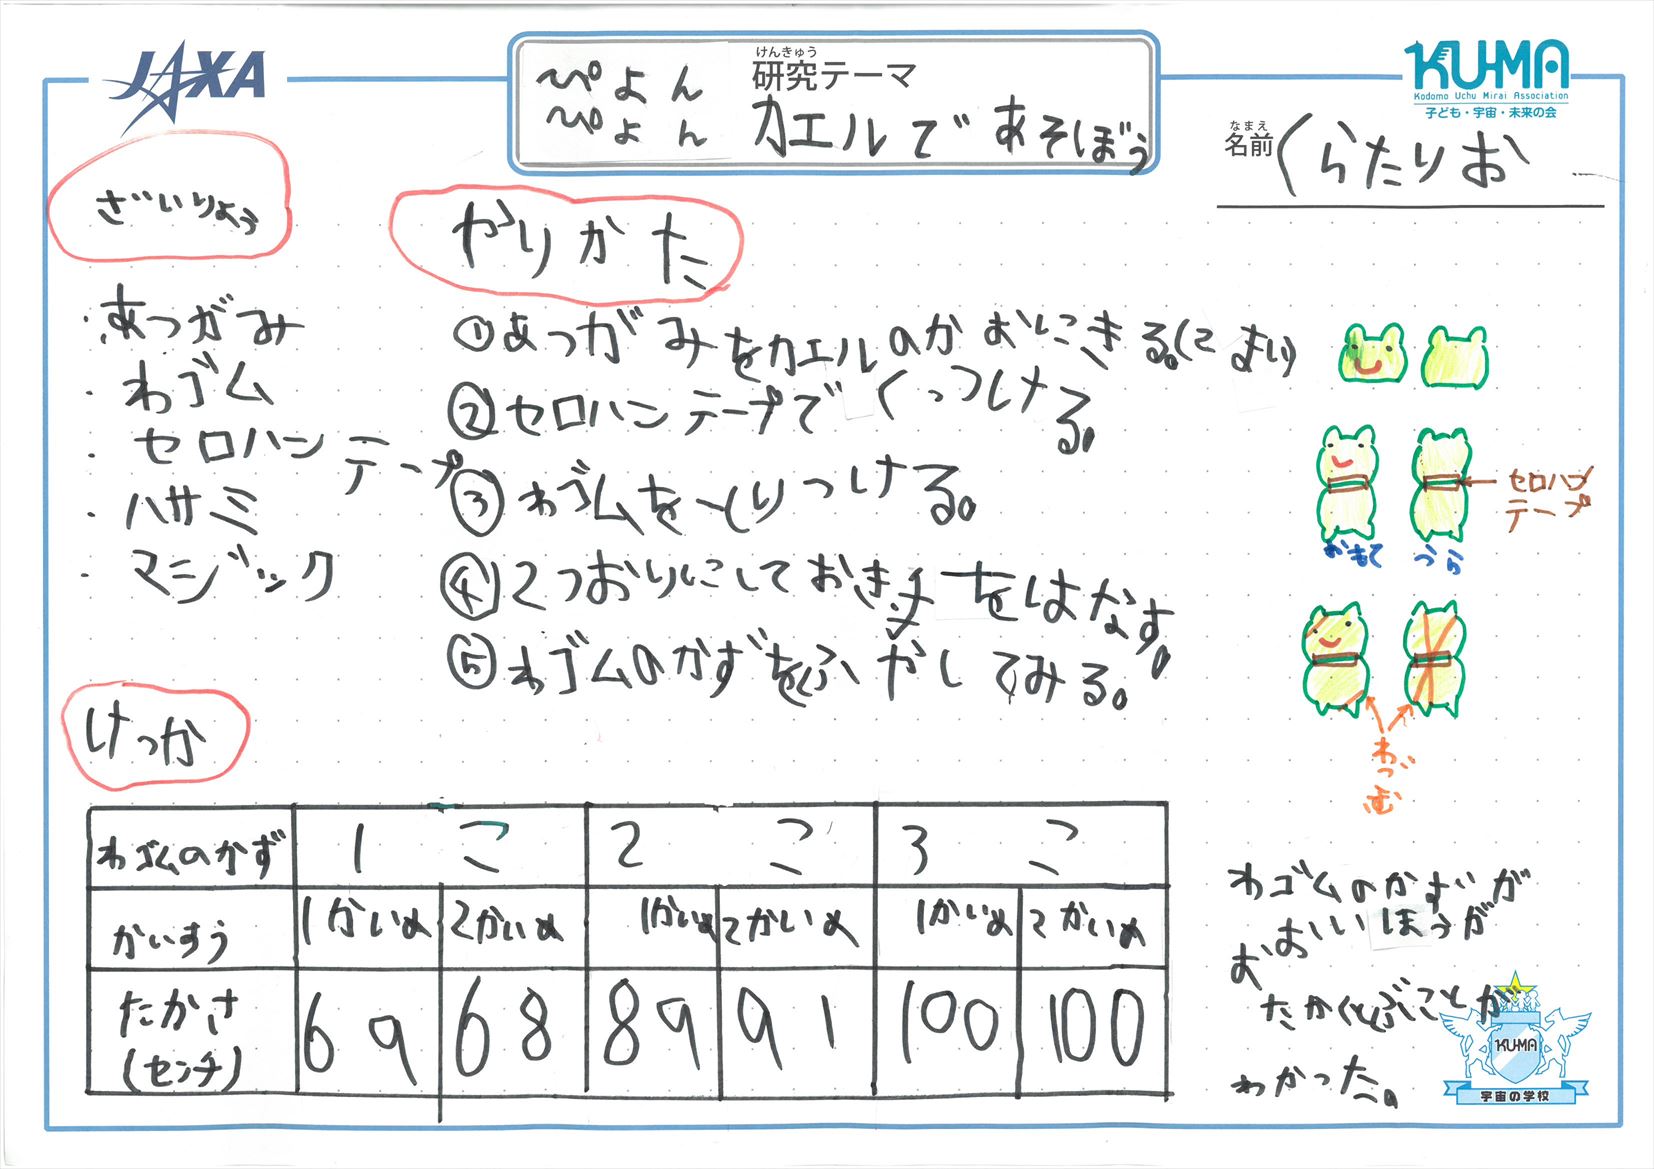 JAXA
けんきゅう
研究テーマ
ぴょん
ぴょん
カエルであそぼう
KU-MA
Kodomo Uchu Mirai Association
子ども・宇宙・未来の会
なまえ
名前
くらたりお
ざいりょう
・あつがみ
・わゴム
・セロハンテープ
・ハサミ
・マジック
やりかた
①あつがみをカエルのかおにきる。(2まい)
②セロハンテープでくっつける。
③わゴムをとりつける。
④2つおりにしておき手をはなす。
⑤わゴムのかずをふやしてみる。
セロハン
テープ
おもて
うら
わごむ
けっか
わゴムのかず 1こ 2こ 3こ
かいすう 1かいめ 2かいめ 1かいめ 2かいめ 1かいめ 2かいめ
たかさ
(センチ) 69 68 89 91 100 100
わゴムのかずが
おおいほうが
たかくとぶことが
わかった。
KU-MA
宇宙の学校